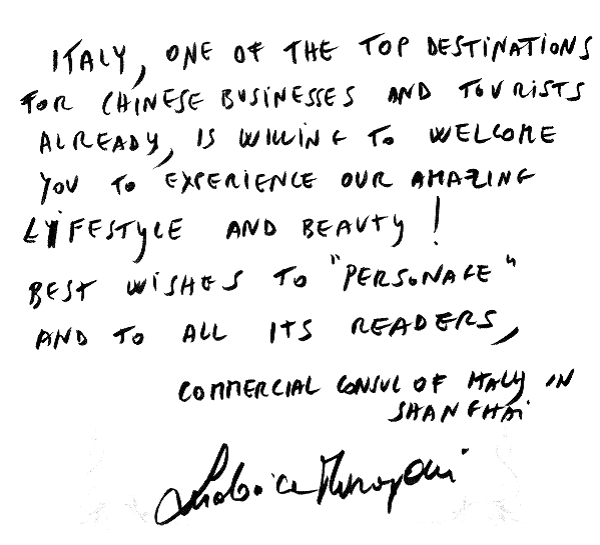 ITALY, ONE OF THE TOP DESTINATIONS
FOR CHINESE BUSINESSES AND TOURISTS
ALREADY, IS WILLING TO WELCOME
YOU TO EXPERIENCE OUR AMAZING
LIFESTYLE AND BEAUTY!
BEST WISHES TO "PERSONAGE"
AND TO ALL ITS READERS,
COMMERCIAL CONSUL OF ITALY IN
SHANGHAI